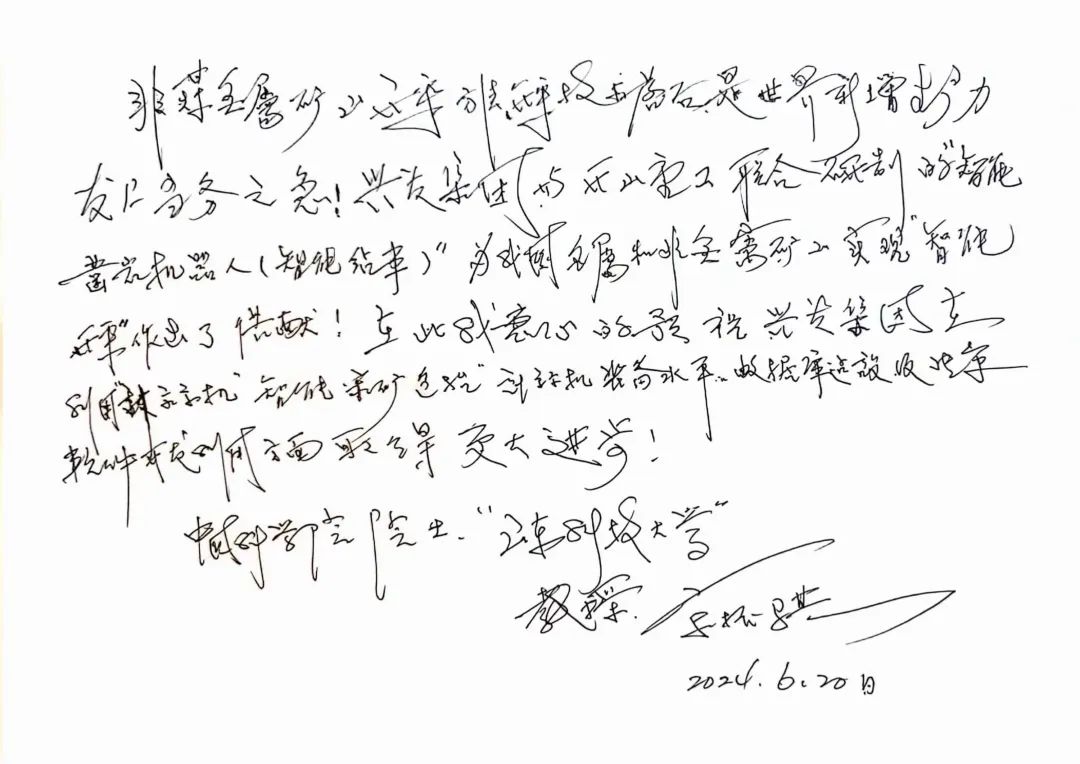 非煤金属矿山开采方法、开采技术落后是世界新增动力
发展当务之急！兴发集团与开山重工联合研制的“智能
凿岩机器人（智能钻车）”为我国金属和非金属矿山实现“智能
开采”作出了贡献！在此我衷心的预祝兴发集团在
利用 智能采矿 装备水平、数据库建设及 
软件开发利用方面取得更大进步！
中国科学院院士、“ 科技大学”
教授
2024.6.20日